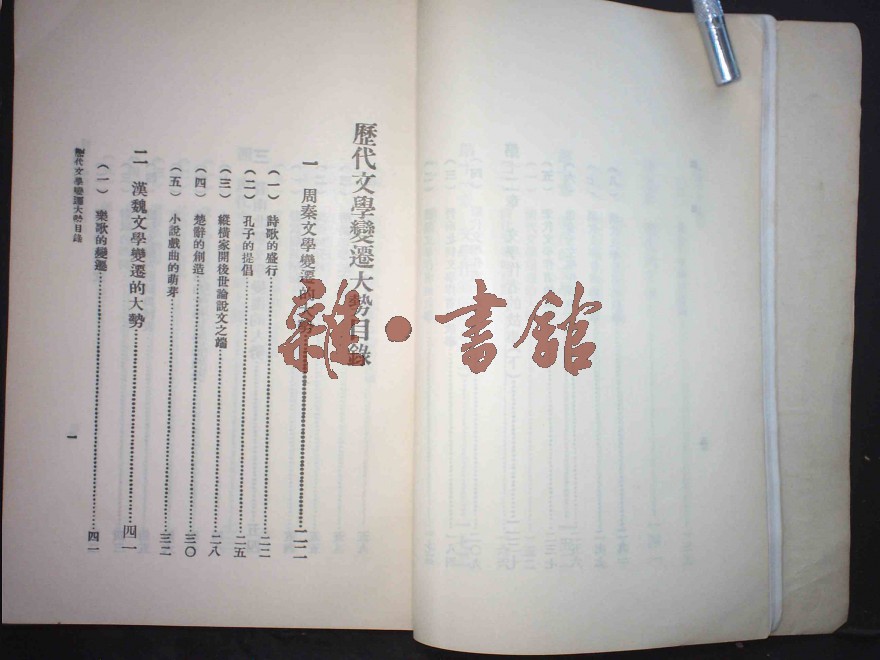 歷代文學變遷大勢目錄
一 周秦文學變遷的大勢……二二
(一) 詩歌的盛行……二二
(二) 孔子的提倡……二五
(三) 縱橫家開後世論說文之端……二八
(四) 楚辭的創造……三〇
(五) 小說戲曲的萌芽……三二
二 漢魏文學變遷的大勢……四一
(一) 樂歌的變遷……四一
歷代文學變遷大勢目錄
一
雜·書館